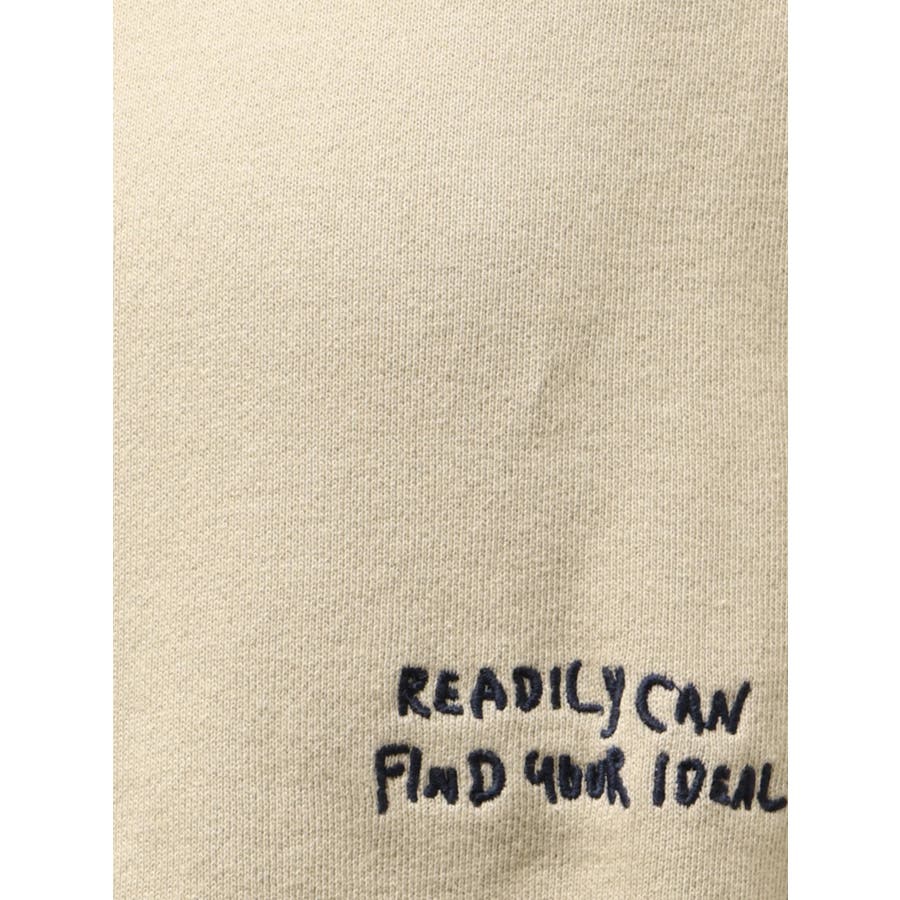 READILY CAN
FIND YOUR IDEAL